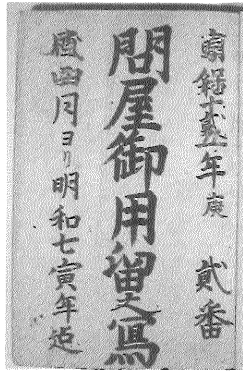 寳暦十辰年庚 貳番
問屋御用留之寫
四月ヨリ明和七寅年迄